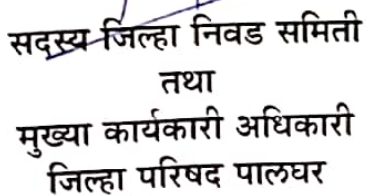 सदस्य जिल्हा निवड समिती
तथा
मुख्या कार्यकारी अधिकारी
जिल्हा परिषद पालघर